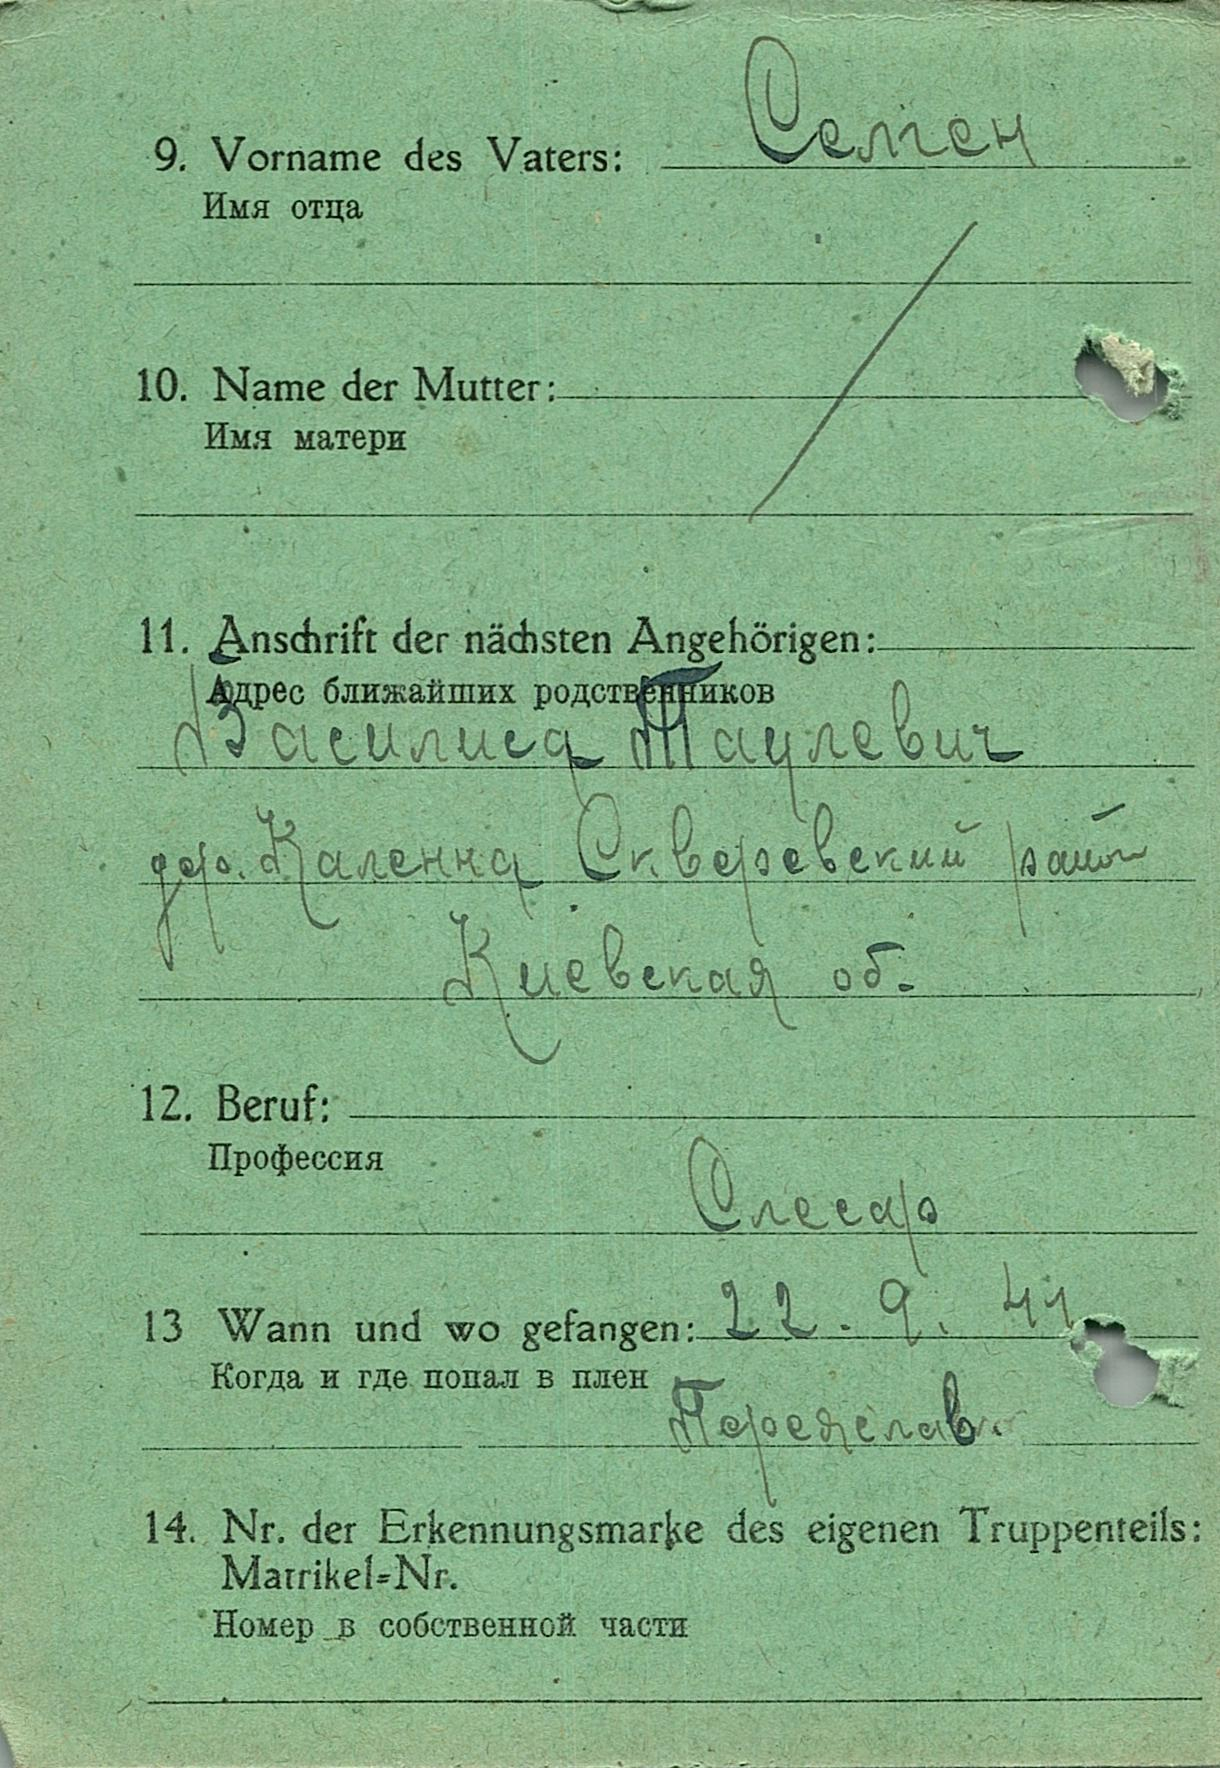 9. Vorname des Vaters: Семен
Имя отца
10. Name der Mutter:
Имя матери
11. Anschrift der nächsten Angehörigen:
Адрес ближайших родственников
Василиса Паулевич
дер. Каленна Скверевский район
Киевская об.
12. Beruf:
Профессия
Слесар
13 Wann und wo gefangen: 22. 9. 41
Когда и где попал в плен
Переяслав.
14. Nr. der Erkennungsmarke des eigenen Truppenteils:
Matrikel=Nr.
Номер в собственной части